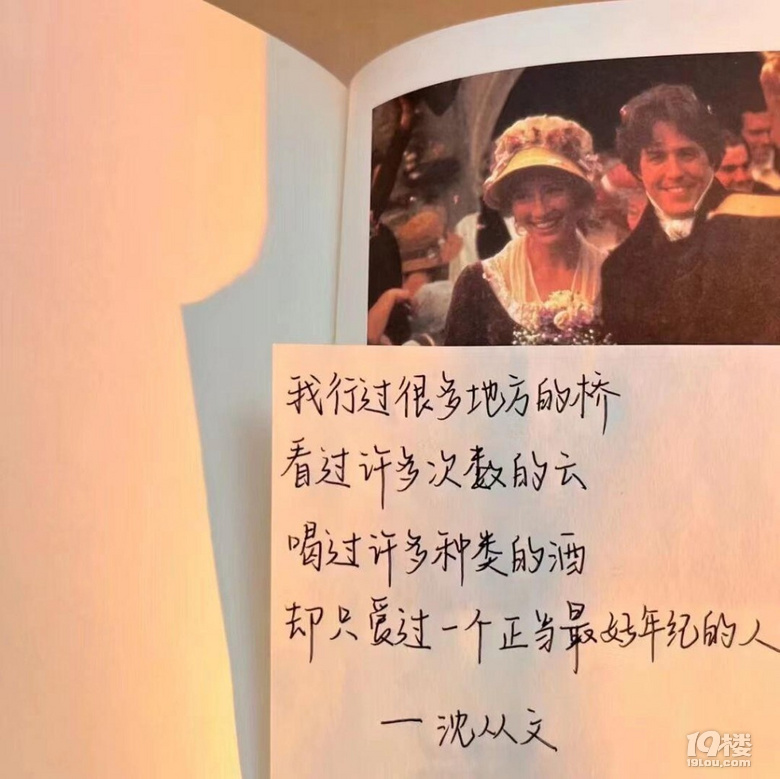 我行过很多地方的桥
看过许多次数的云
喝过许多种类的酒
却只爱过一个正当最好年纪的人
—沈从文
19楼
19lou.com